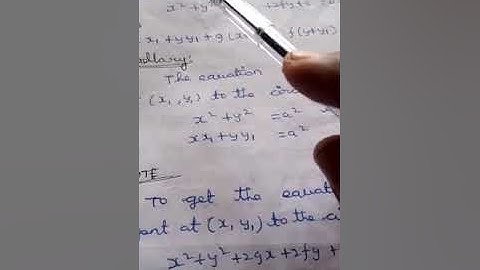 x² + y² + 2fy +
x₁ + yy₁ + g(x f(y+y₁)
ollary:
The equation
(x₁, y₁) to the circ
x² + y² = a²
xx₁ + yy₁ = a²
OTE
To get the equat
ent at (x₁ y₁) to the ci
x² + y² + 2gx + 2fy +